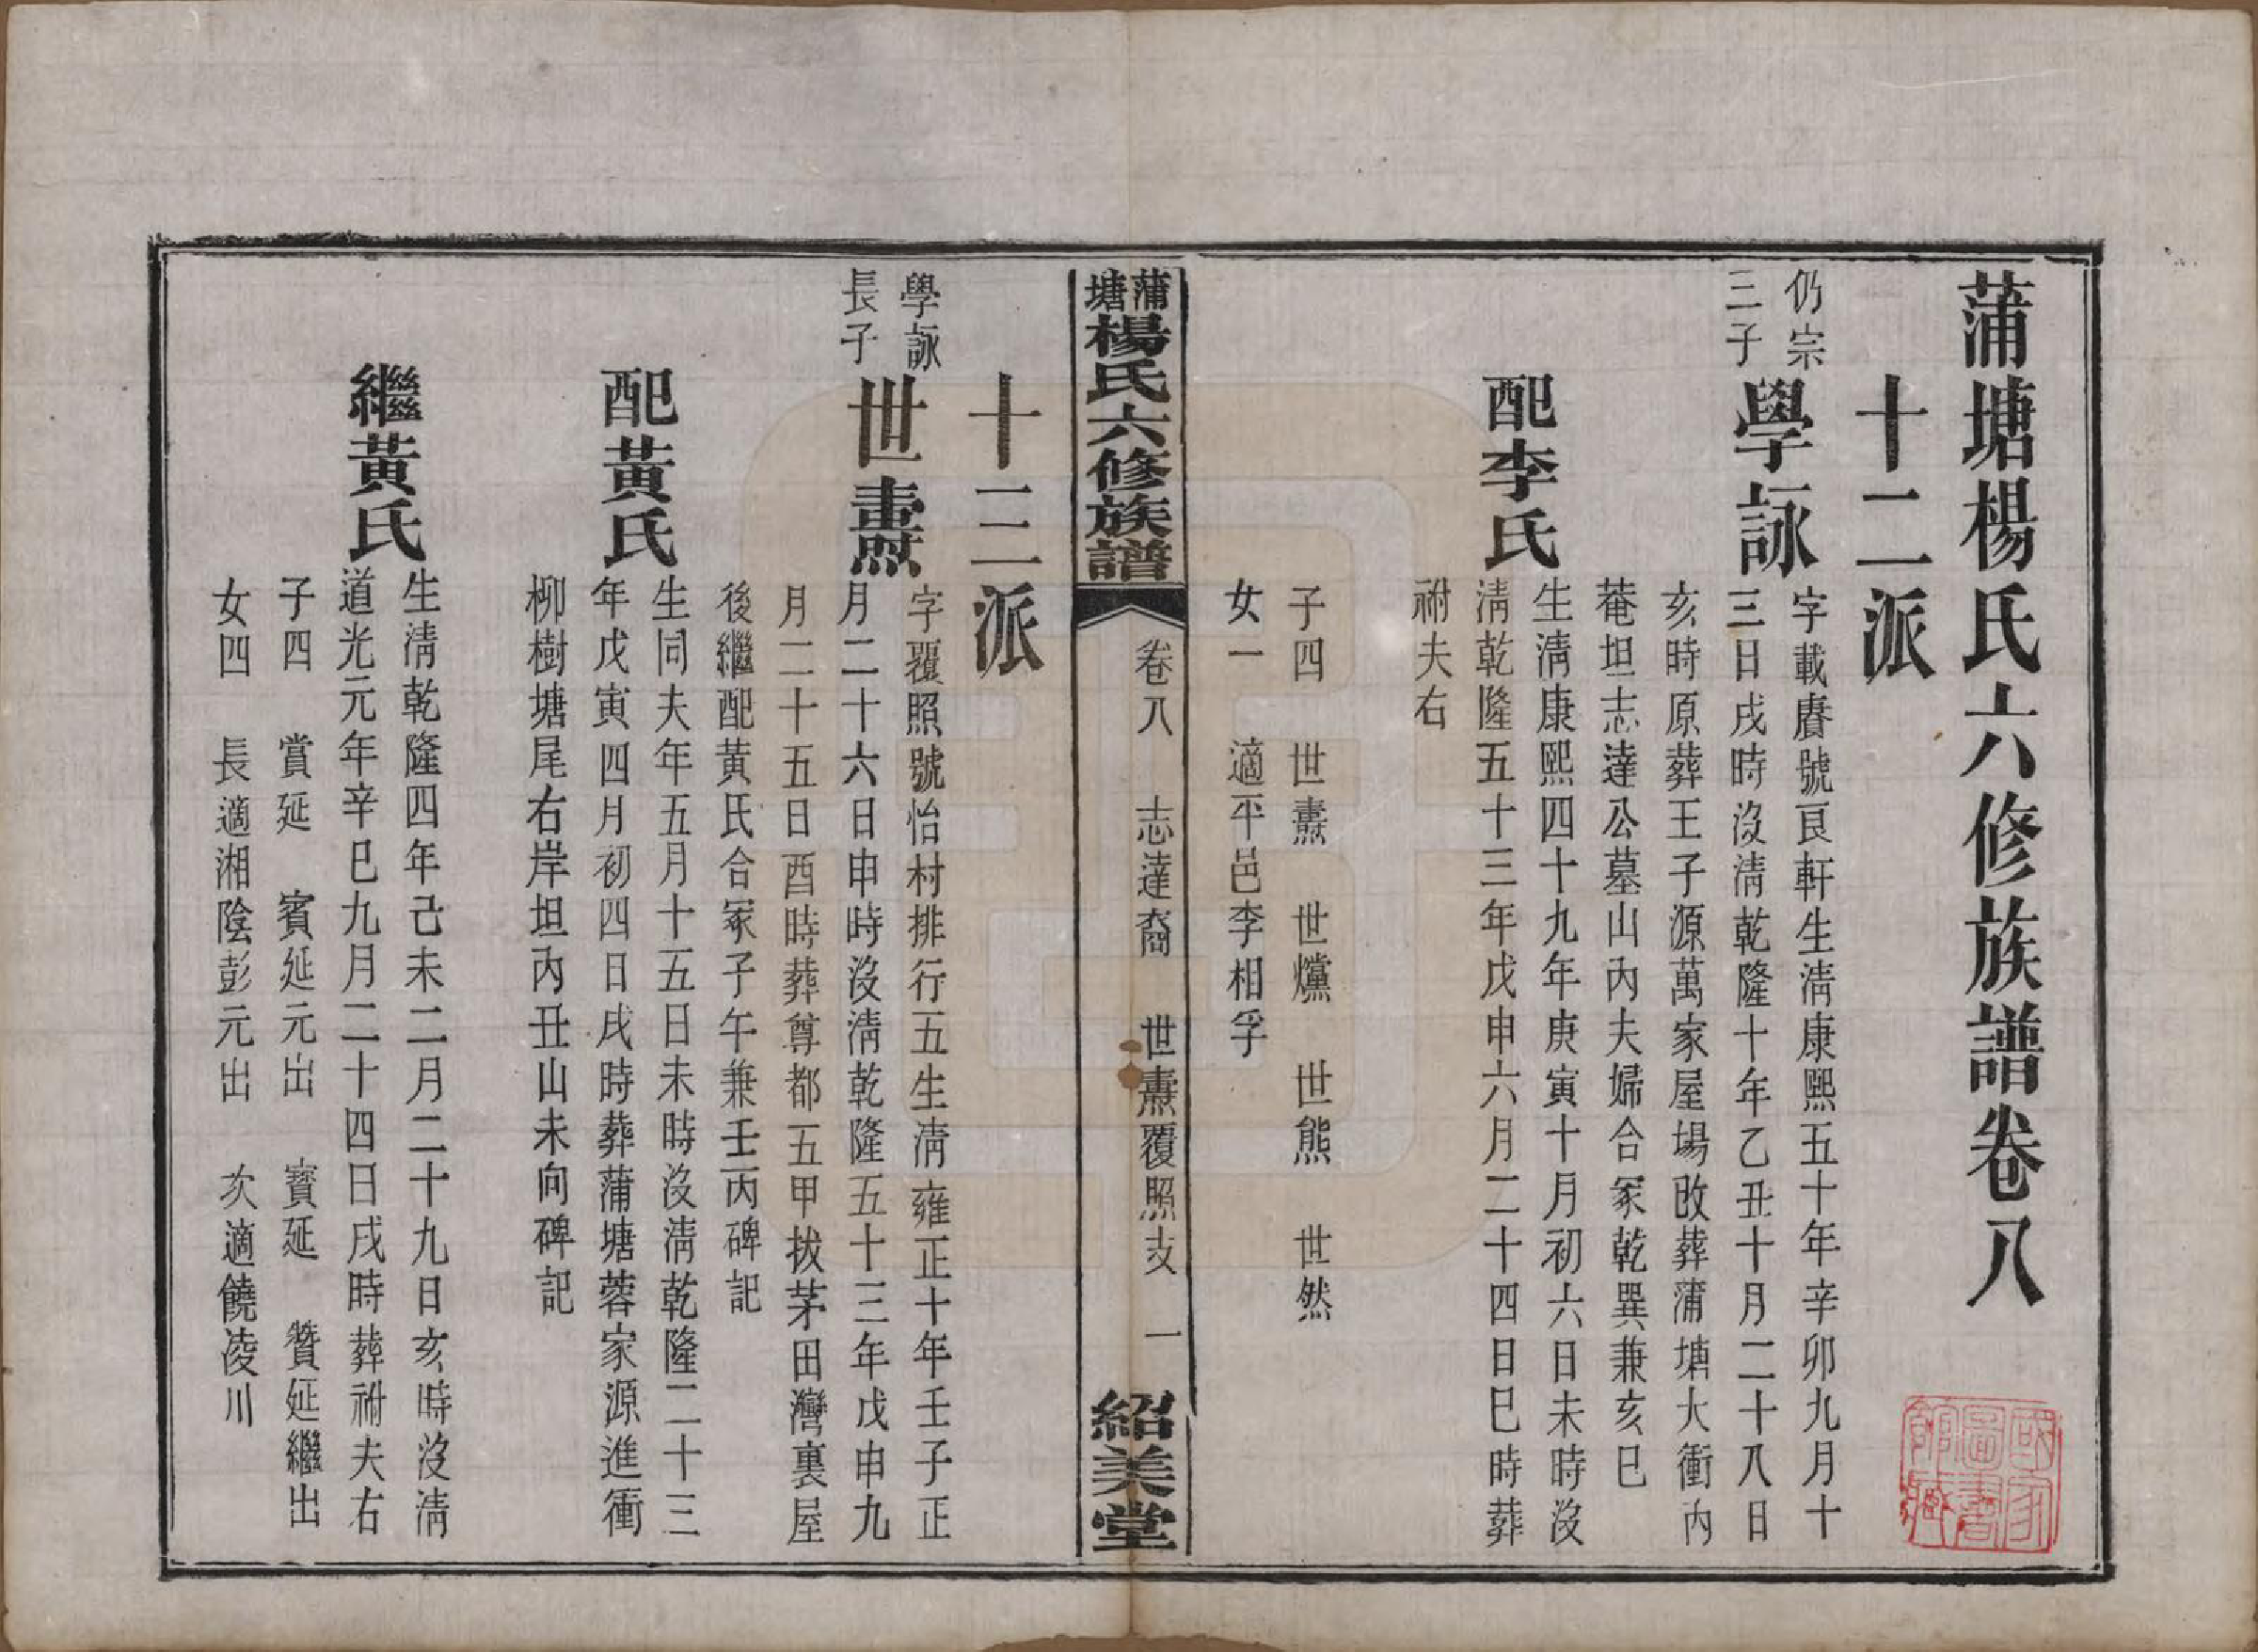 蒲塘楊氏六修族譜卷八
十二派
仍宗
三子
學詠
字載賡號艮軒生淸康熙五十年辛卯九月十
三日戌時沒淸乾隆十年乙丑十月二十八日
亥時原葬王子源萬家屋場改葬蒲塘大衝內
菴坦志達公墓山內夫婦合冢乾巽兼亥巳
配李氏
生淸康熙四十九年庚寅十月初六日未時沒
淸乾隆五十三年戊申六月二十四日巳時葬
祔夫右
子四 世燾 世爣 世熊 世然
女一 適平邑李相孚
蒲塘楊氏六修族譜
卷八 志達裔 世燾覆照支 一
紹美堂
十三派
學詠
長子
世燾
字覆照號怡村排行五生淸雍正十年壬子正
月二十六日申時沒淸乾隆五十三年戊申九
月二十五日酉時葬尊都五甲拔茅田灣裏屋
後繼配黃氏合冢子午兼壬丙碑記
配黃氏
生同夫年五月十五日未時沒淸乾隆二十三
年戊寅四月初四日戌時葬蒲塘蓉家源進衝
柳樹塘尾右岸坦內丑山未向碑記
繼黃氏
生淸乾隆四年己未二月二十九日亥時沒淸
道光元年辛巳九月二十四日戌時葬祔夫右
子四 賞延 賓延元出 寶延 贊延繼出
女四 長適湘陰彭元出 次適饒凌川
國家圖書館藏